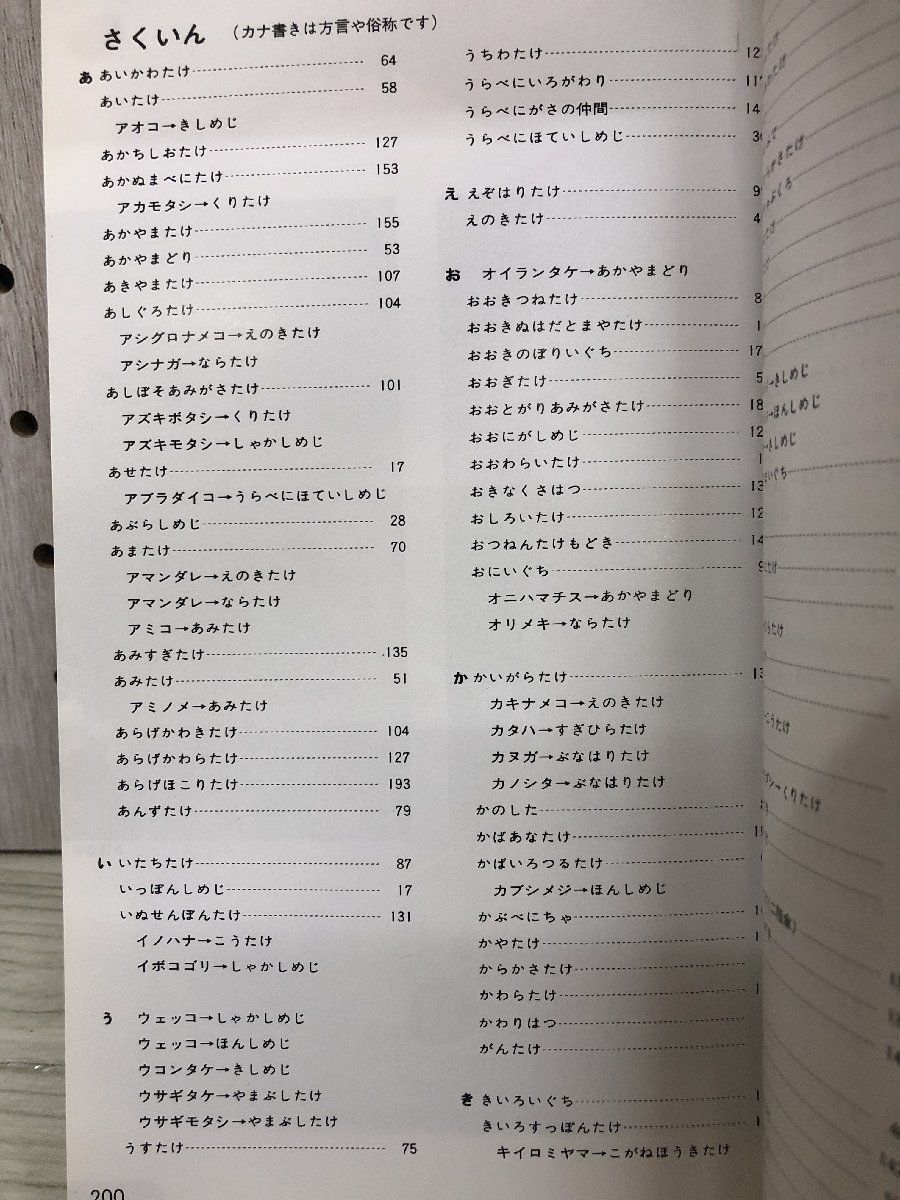 さくいん （カナ書きは方言や俗称です）
あ あいかわたけ 64
あいたけ 58
アオコ→きしめじ
あかちしおたけ 127
あかぬまべにたけ 153
アカモタシ→くりたけ
あかやまたけ 155
あかやまどり 53
あきやまたけ 107
あしぐろたけ 104
アシグロナメコ→えのきたけ
アシナガ→ならたけ
あしぼそあみがさたけ 101
アズキボタシ→くりたけ
アズキモタシ→しゃかしめじ
あせたけ 17
アブラダイコ→うらべにほていしめじ
あぶらしめじ 28
あまたけ 70
アマンダレ→えのきたけ
アマンダレ→ならたけ
アミコ→あみたけ
あみすぎたけ 135
あみたけ 51
アミノメ→あみたけ
あらげかわきたけ 104
あらげかわらたけ 127
あらげほこりたけ 193
あんずたけ 79
い いたちたけ 87
いっぽんしめじ 17
いぬせんぼんたけ 131
イノハナ→こうたけ
イボコゴリ→しゃかしめじ
う ウェッコ→しゃかしめじ
ウェッコ→ほんしめじ
ウコンタケ→きしめじ
ウサギタケ→やまぶしたけ
ウサギモタシ→やまぶしたけ
うすたけ 75
200
うちわたけ
うらべにいろがわり
うらべにがさの仲間
うらべにほていしめじ
え えぞはりたけ
えのきたけ
お オイランタケ→あかやまどり
おおきつねたけ
おおきぬはだとまやたけ
おおきのぼりいぐち
おおぎたけ
おおとがりあみがさたけ
おおにがしめじ
おおわらいたけ
おきなくさはつ
おしろいたけ
おつねんたけもどき
おにいぐち
オニハマチス→あかやまどり
オリメキ→ならたけ
か かいがらたけ
カキナメコ→えのきたけ
カタハ→すぎひらたけ
カヌガ→ぶなはりたけ
カノシタ→ぶなはりたけ
かのした
かばあなたけ
かばいろつるたけ
カブシメジ→ほんしめじ
かぶべにちゃ
かやたけ
からかさたけ
かわらたけ
かわりはつ
がんたけ
き きいろいぐち
きいろすっぽんたけ
キイロミヤマ→こがねほうきたけ